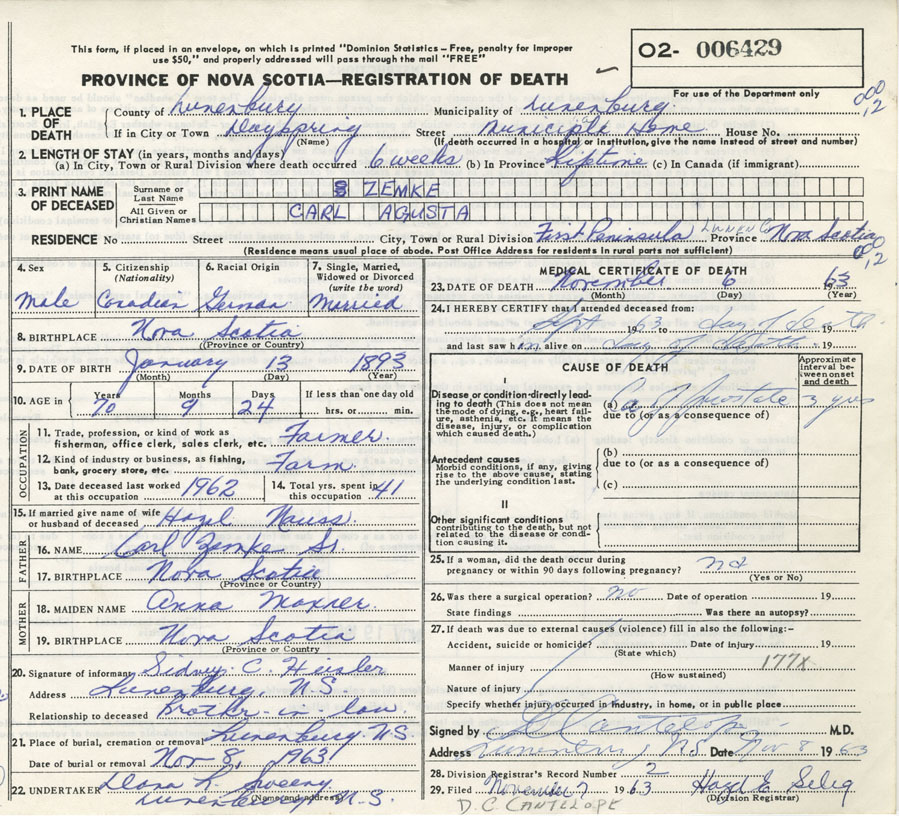 This form, if placed in an envelope, on which is printed "Dominion Statistics – Free, penalty for improper
use $50," and properly addressed will pass through the mail "FREE"
O2- 006429
PROVINCE OF NOVA SCOTIA—REGISTRATION OF DEATH
For use of the Department only
000
12
1. PLACE OF DEATH County of Lunenburg Municipality of Lunenburg
If in City or Town Dayspring Street Municipal Home House No.
(Name) (If death occurred in a hospital or institution, give the name instead of street and number)
2. LENGTH OF STAY (in years, months and days)
(a) In City, Town or Rural Division where death occurred 6 weeks (b) In Province Lifetime (c) In Canada (if immigrant)
3. PRINT NAME OF DECEASED Surname or Last Name ZEMKE
All Given or Christian Names CARL AGUSTA
RESIDENCE No Street City, Town or Rural Division First Peninsula LUNEN Co Province Nova Scotia
(Residence means usual place of abode. Post Office Address for residents in rural parts not sufficient)
000
12
4. Sex 5. Citizenship (Nationality) 6. Racial Origin 7. Single, Married, Widowed or Divorced (write the word)
Male Canadian German Married
8. BIRTHPLACE Nova Scotia
(Province or Country)
9. DATE OF BIRTH January 13 1893
(Month) (Day) (Year)
10. AGE in Years Months Days If less than one day old
70 9 24 hrs. or min.
OCCUPATION
11. Trade, profession, or kind of work as fisherman, office clerk, sales clerk, etc. Farmer.
12. Kind of industry or business, as fishing, bank, grocery store, etc. Farm.
13. Date deceased last worked at this occupation 1962 14. Total yrs. spent in this occupation 41
15. If married give name of wife or husband of deceased Hazel Nauss.
FATHER
16. NAME Carl Zemke Sr.
17. BIRTHPLACE Nova Scotia
(Province or Country)
MOTHER
18. MAIDEN NAME Anna Moxner.
19. BIRTHPLACE Nova Scotia
(Province or Country
20. Signature of informant Sidney C. Heisler
Address Lunenburg, N.S.
Relationship to deceased Brother-in-law.
21. Place of burial, cremation or removal Lunenburg NS
Date of burial or removal Nov 8, 1963
22. UNDERTAKER Dana L. Sweeny
Lunenburg N.S.
(Name and address)
MEDICAL CERTIFICATE OF DEATH
23. DATE OF DEATH November 6 1963
(Month) (Day) (Year)
24. I HEREBY CERTIFY that I attended deceased from:
Sept 1963 to day of death 19
and last saw him alive on day of death 19
CAUSE OF DEATH
Approximate interval between onset and death
I
Disease or condition directly leading to death (This does not mean the mode of dying, e.g., heart failure, asthenia, etc. It means the disease, injury, or complication which caused death.)
(a) Ca of prostate 3 yrs
due to (or as a consequence of)
Antecedent causes
Morbid conditions, if any, giving rise to the above cause, stating the underlying condition last.
(b)
due to (or as a consequence of)
(c)
II
Other significant conditions
contributing to the death, but not related to the disease or condition causing it.
25. If a woman, did the death occur during pregnancy or within 90 days following pregnancy? no
(Yes or No)
26. Was there a surgical operation? no Date of operation 19
State findings Was there an autopsy?
27. If death was due to external causes (violence) fill in also the following:–
Accident, suicide or homicide? Date of injury 19
(State which)
Manner of injury 177X
(How sustained)
Nature of injury
Specify whether injury occurred in Industry, in home, or in public place
Signed by D C Cantelope M.D.
Address Lunenburg N.S. Date Nov 8 1963
28. Division Registrar's Record Number 2
29. Filed November 7 1963 Hazel E Selig
(Division Registrar)
D. C. CANTELOPE